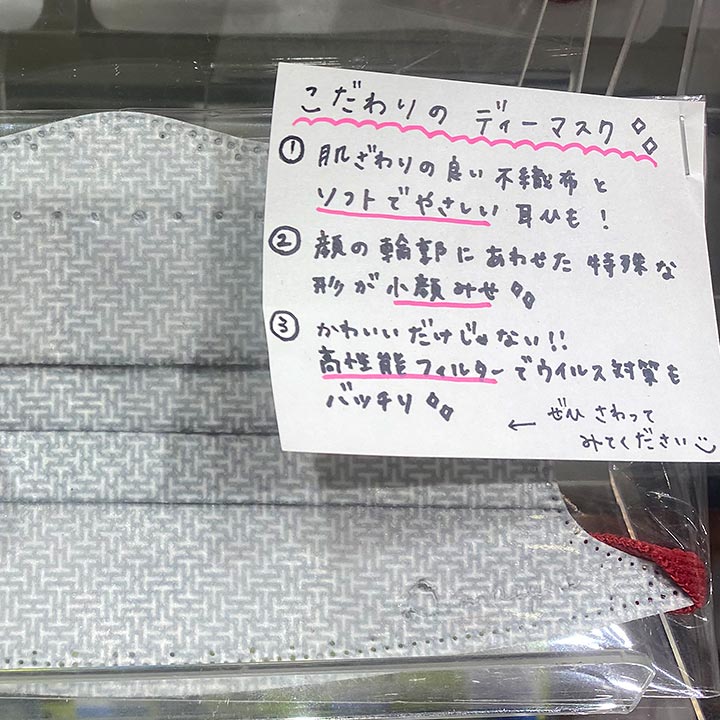 こだわりの ディーマスク
① 肌ざわりの良い不織布と
ソフトでやさしい 耳ひも！
② 顔の輪郭にあわせた 特殊な
形が小顔みせ
③ かわいいだけじゃない!!
高性能フィルターでウイルス対策も
バッチリ
← ぜひ さわって
みてください